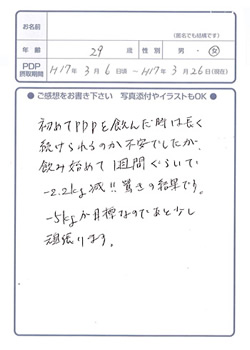 お名前
(匿名でも結構です)
年 齢 29 歳 性 別 男 ・ 女
PDP摂取期間 H17年 3月 6日頃 ～ H17年 3月 26日(現在)
● ご感想をお書き下さい 写真添付やイラストもOK ●
初めてPDPを飲んだ時は長く
続けられるのか不安でしたが、
飲み始めて1週間ぐらいで
-2.2kg減!! 驚きの結果です。
-5kgが目標なのであと少し
頑張ります。